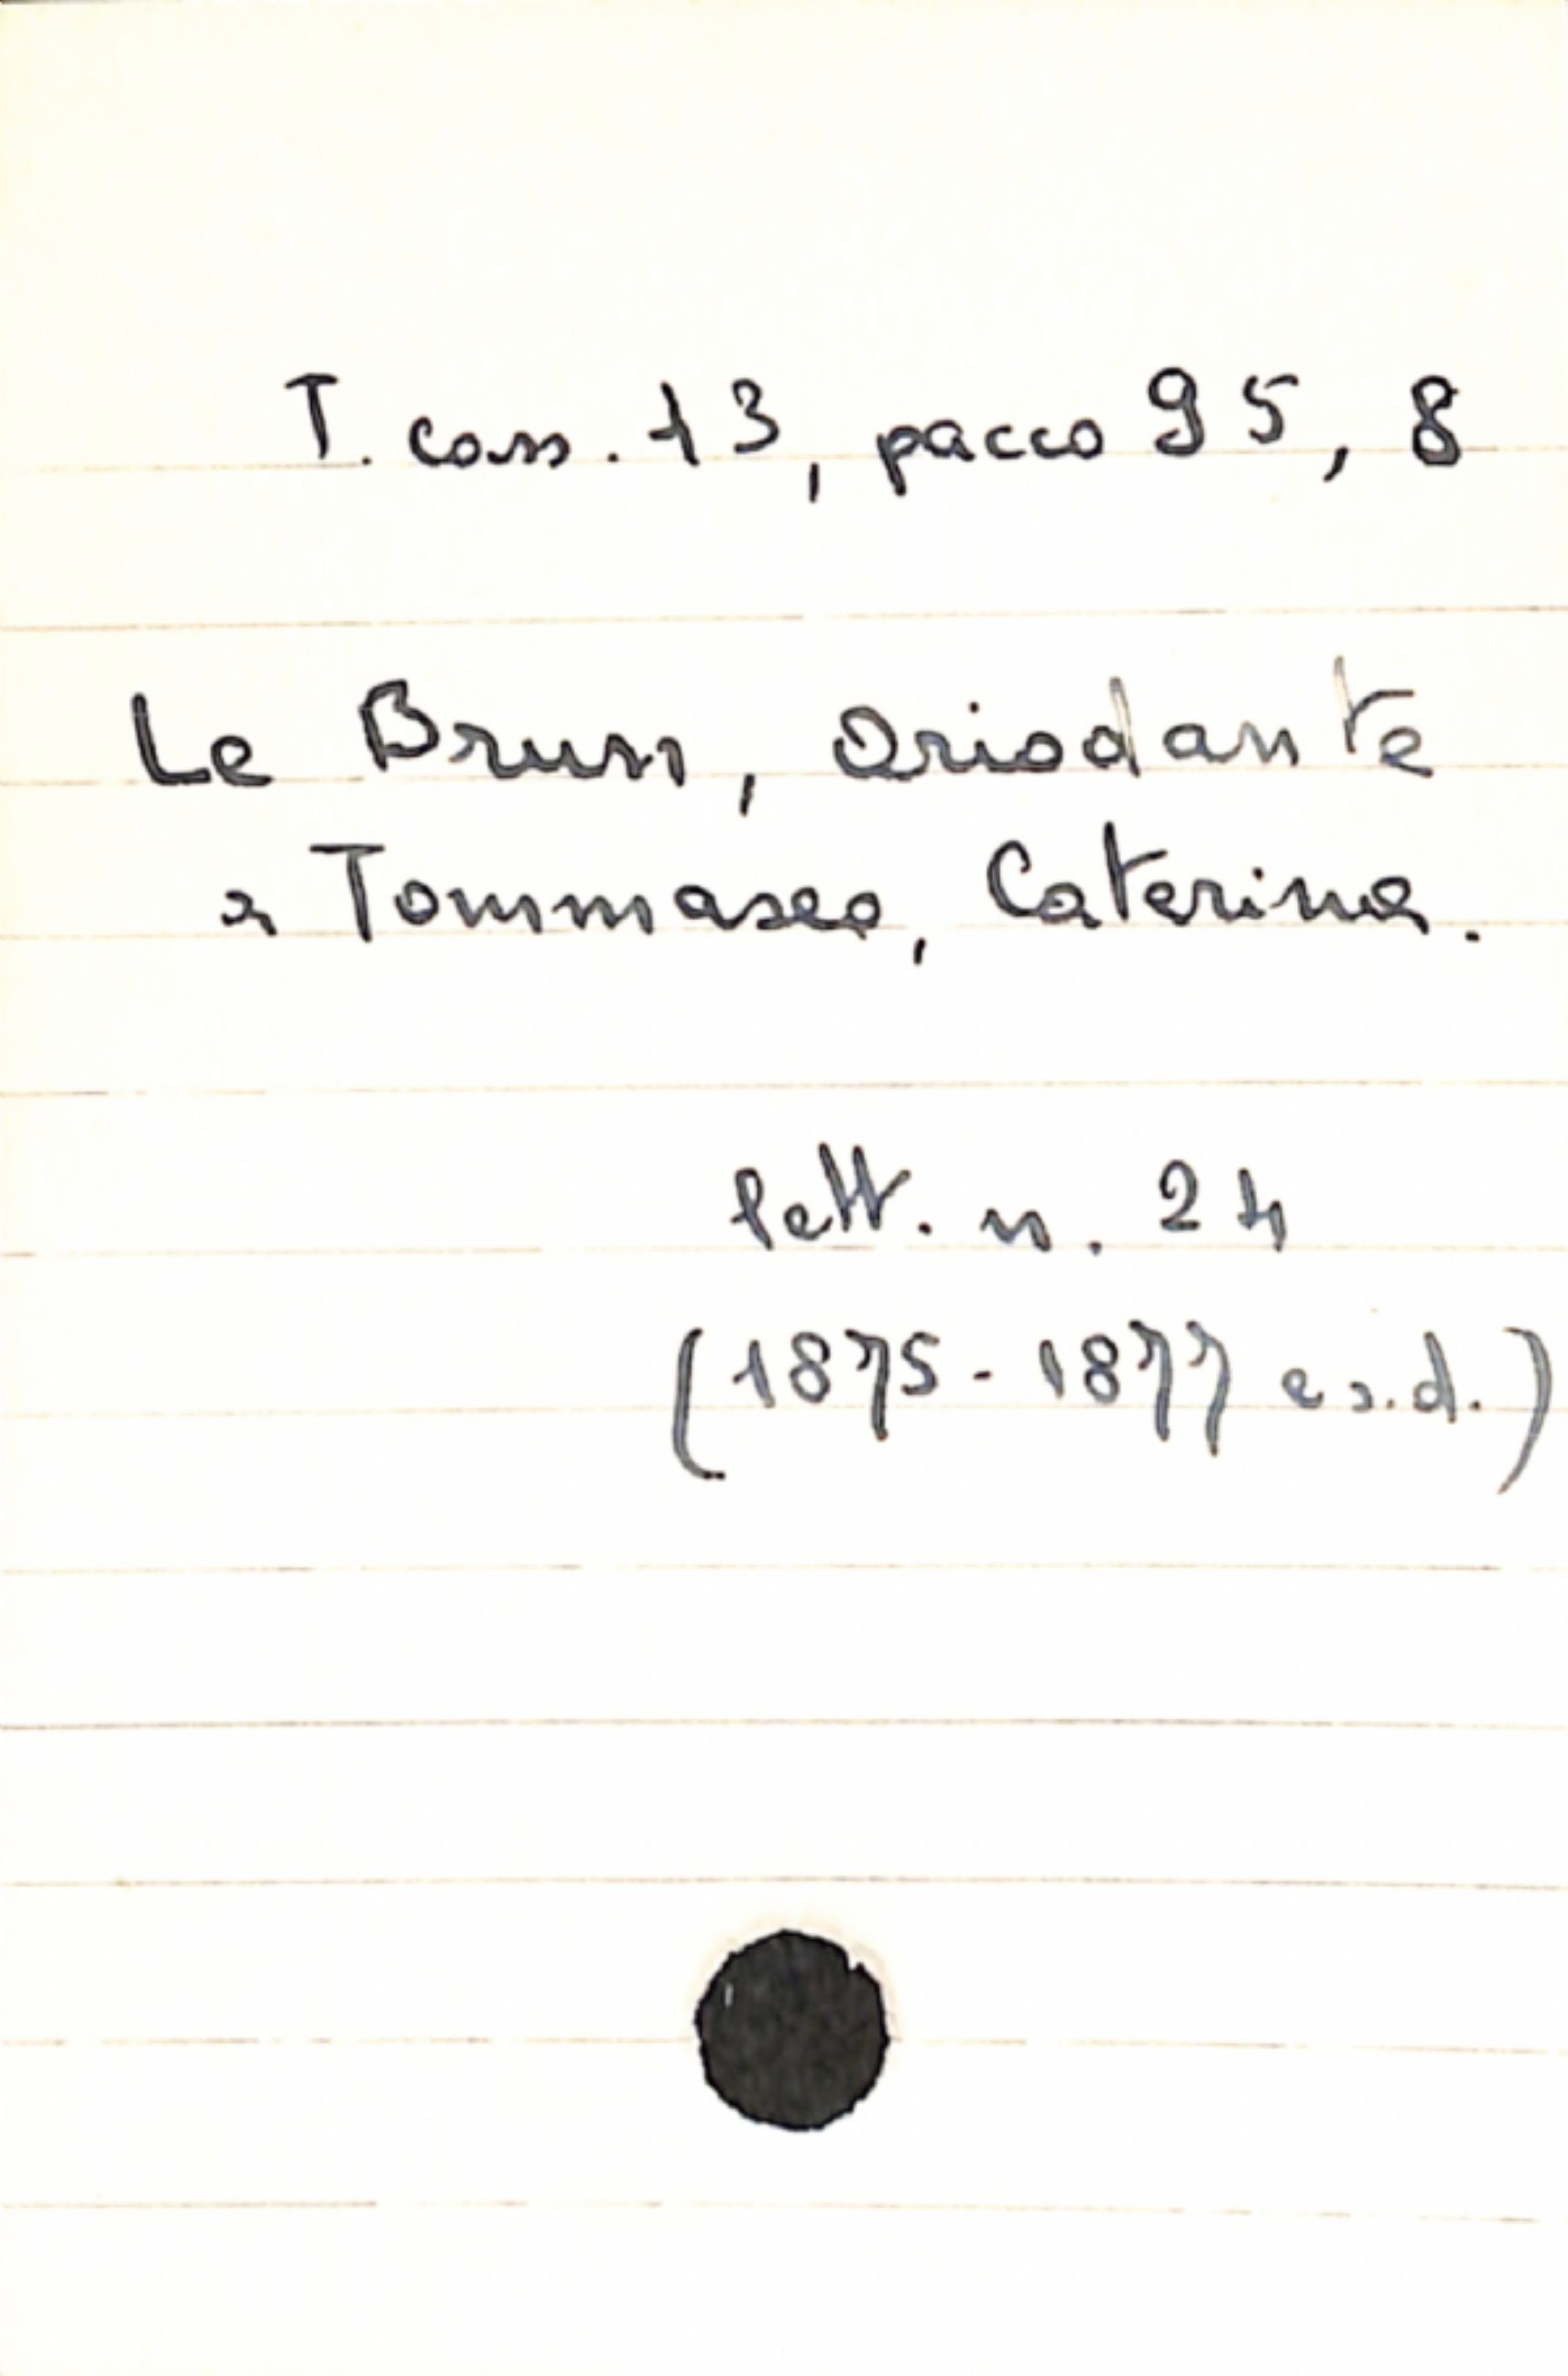 T. cass. 13, pacco 95, 8
Le Brun, Oriodante
a Tommaseo, Caterina.
lett. n. 24
(1875-1877 e s.d.)